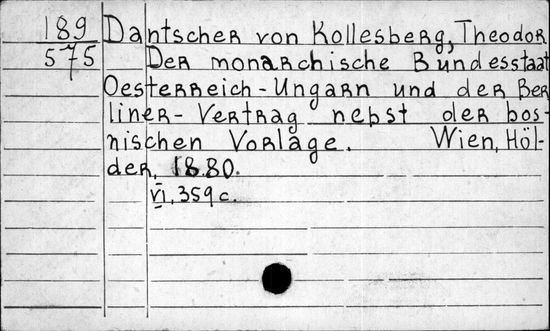 189 Dantscher von Kollesberg, Theodor
575 Der monarchische Bundesstaat
Oesterreich-Ungarn und der Ber
liner-Vertrag nebst der bos-
nischen Vorlage. Wien, Höl-
der, 1880.
VI, 359 c.